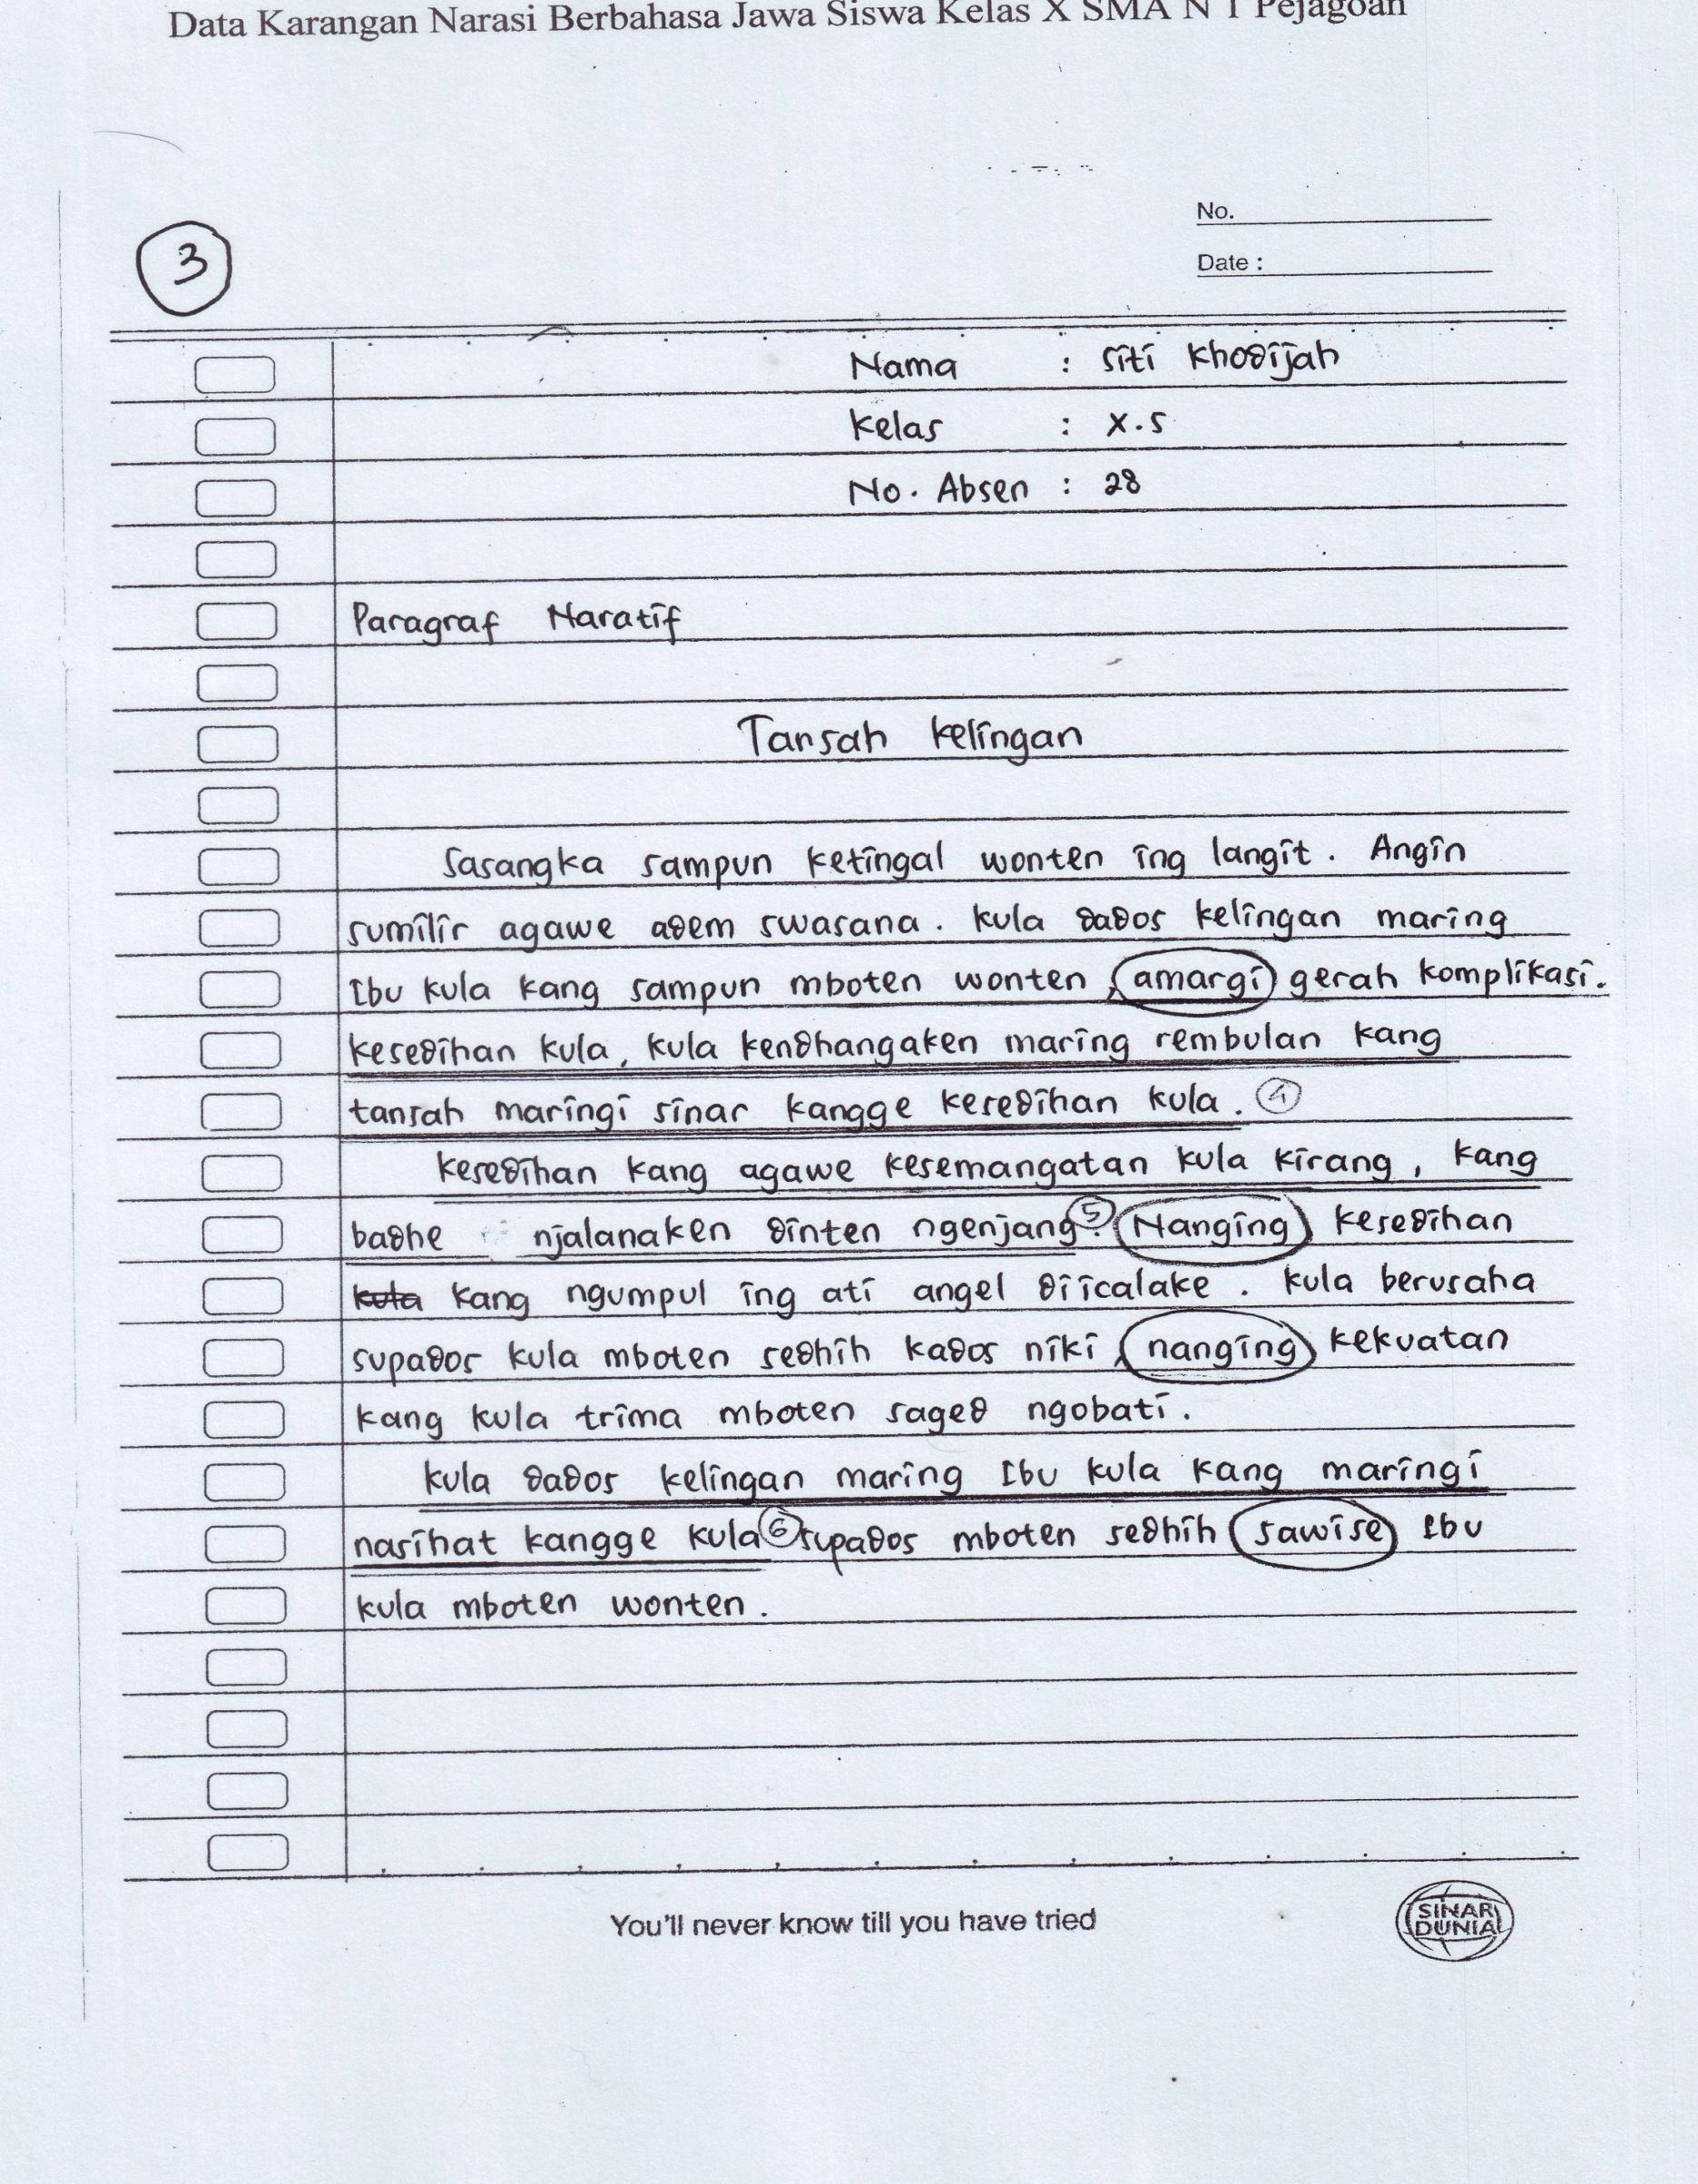 Data Karangan Narasi Berbahasa Jawa Siswa Kelas X SMA N 1 Pejagoan
No.
Date :
3
Nama : Siti Khodijah
Kelas : X.5
No. Absen : 28
Paragraf Naratif
Tansah Kelingan
Sasangka sampun ketingal wonten ing langit. Angin
sumilir agawe adem swasana. Kula dados kelingan maring
Ibu kula kang sampun mboten wonten, amargi gerah komplikasi.
Kesedihan kula, kula kendhangaken maring rembulan kang
tansah maringi sinar kangge kesedihan kula. 4
Kesedihan kang agawe kesemangatan kula kirang, kang
badhe njalanaken dinten ngenjang. 5 Nanging kesedihan
kula kang ngumpul ing ati angel diicalake. Kula berusaha
supados kula mboten sedhih kados niki, nanging kekuatan
kang kula trima mboten saged ngobati.
Kula dados kelingan maring Ibu kula kang maringi
nasihat kangge kula 6 supados mboten sedhih sawise Ibu
kula mboten wonten.
You'll never know till you have tried
SINAR DUNIA